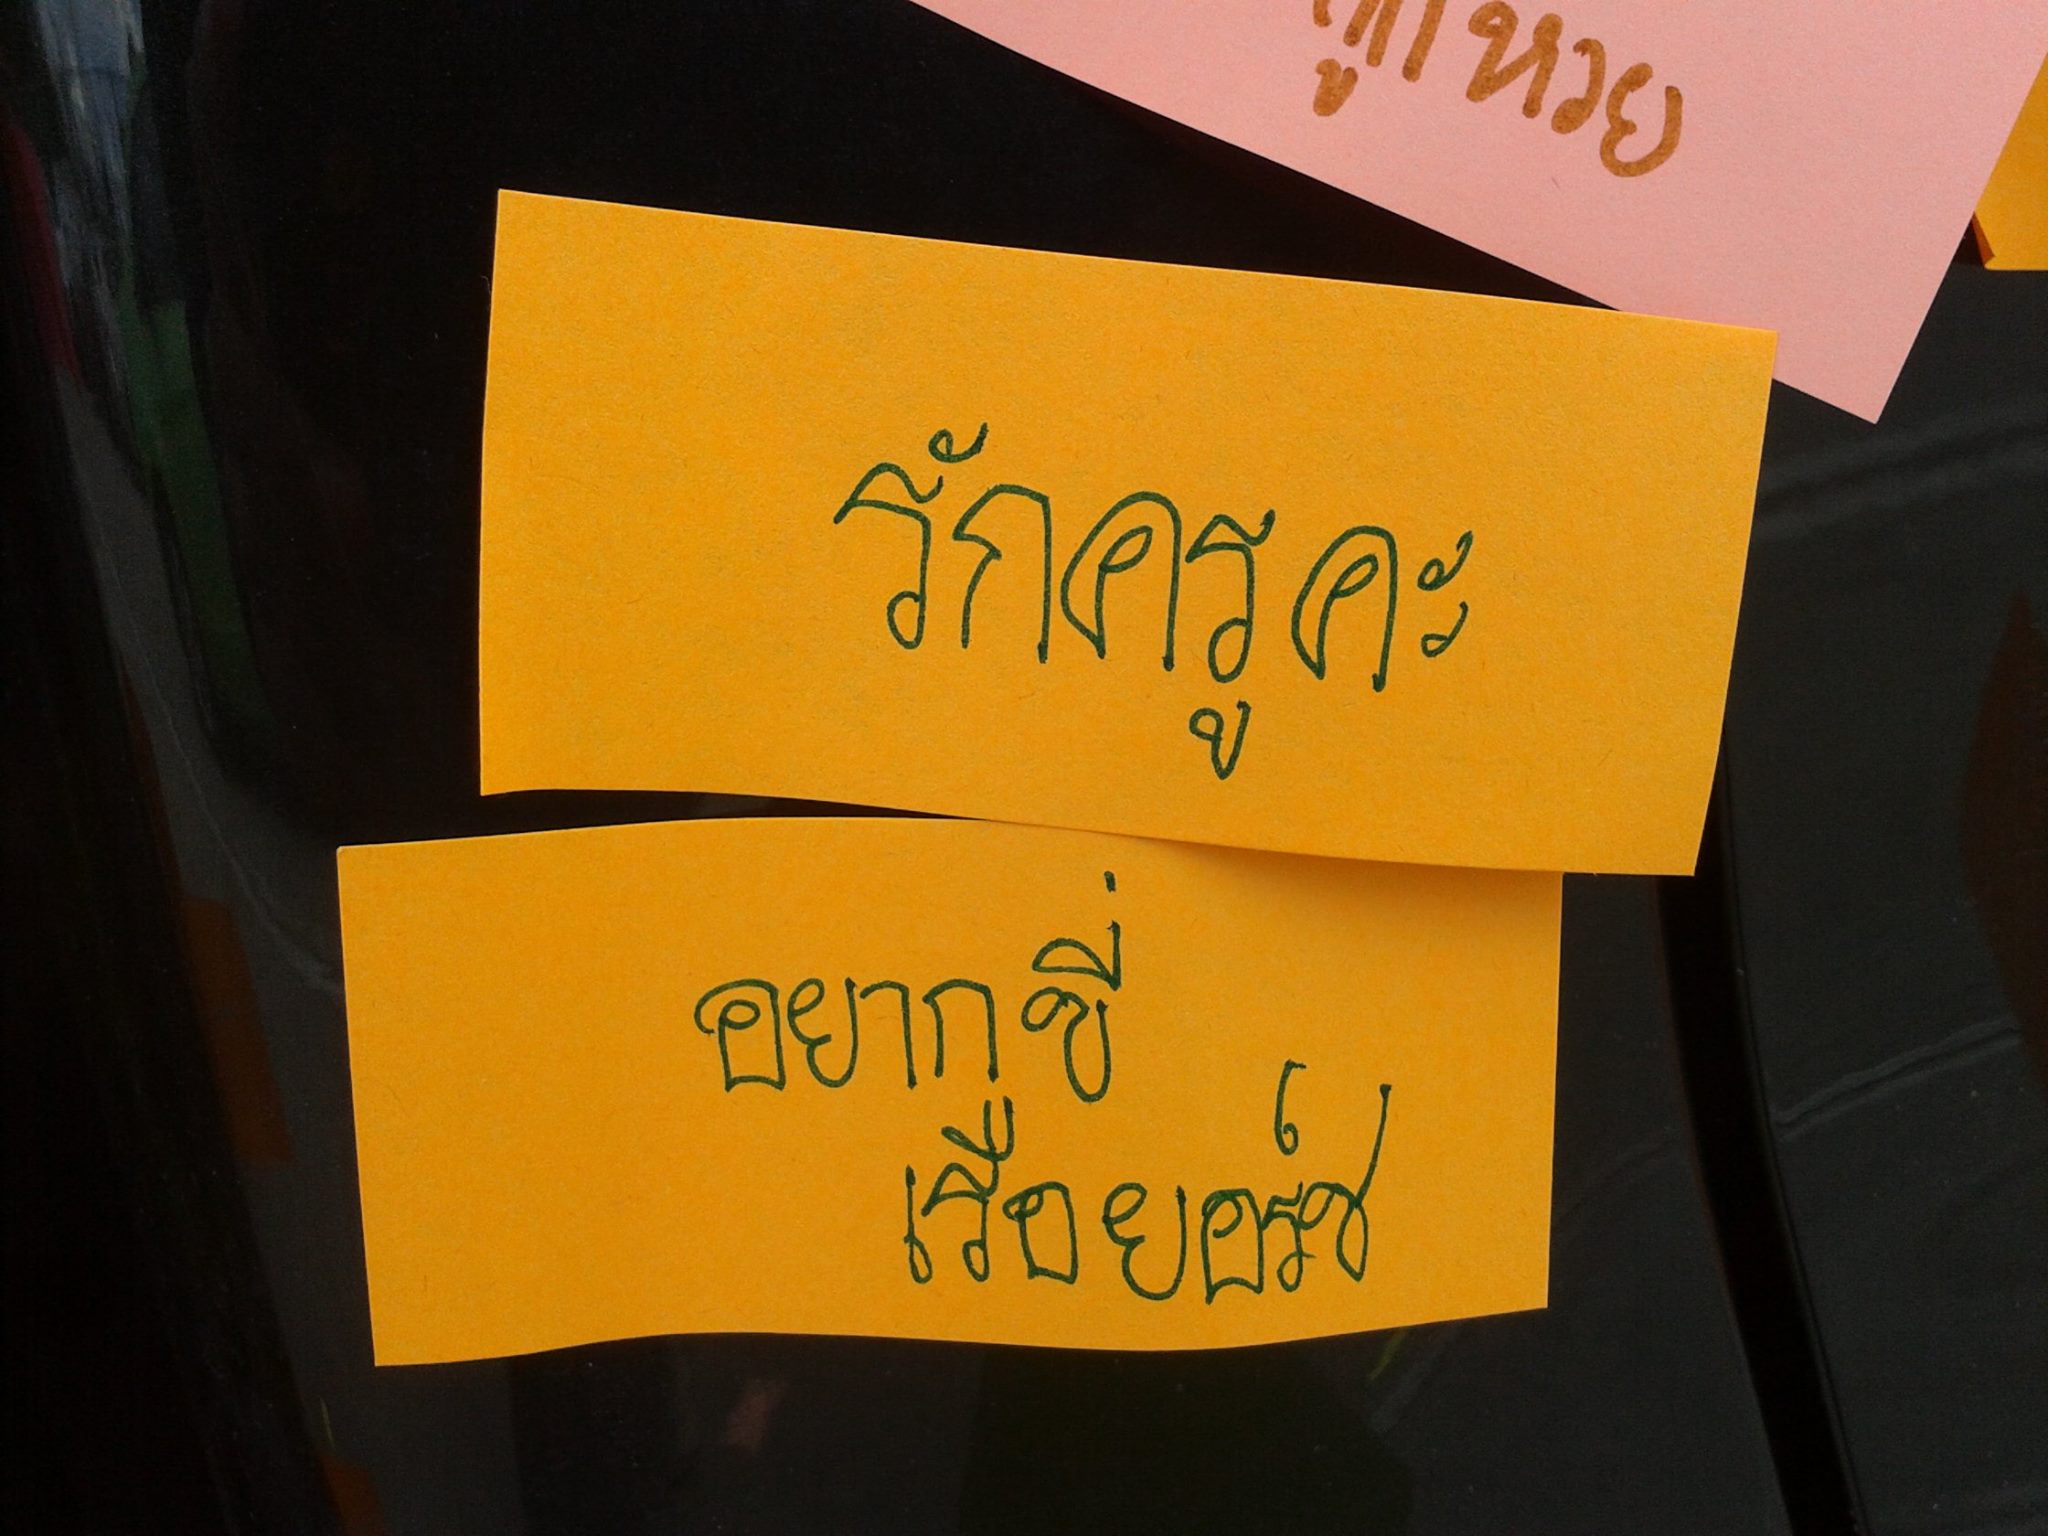 รักครูคะ
อยากขี่
เรือยอร์ช